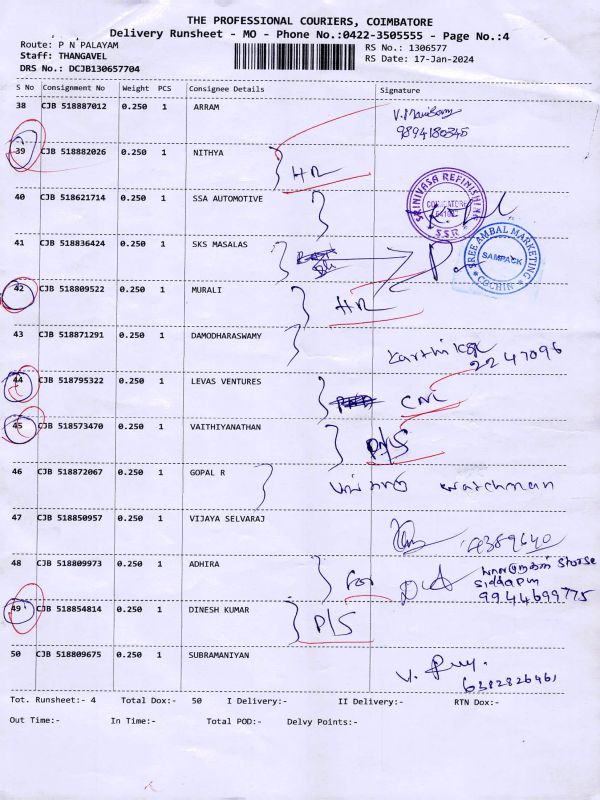 THE PROFESSIONAL COURIERS, COIMBATORE
Delivery Runsheet - MO - Phone No.:0422-3505555 - Page No.:4
Route: P N PALAYAM
RS No.: 1306577
Staff: THANGAVEL
RS Date: 17-Jan-2024
DRS No.: DCJB130657704
S No Consignment No Weight PCS Consignee Details Signature
38 CJB 518887012 0.250 1 ARRAM
9894180345
39 CJB 518882026 0.250 1 NITHYA
HR
40 CJB 518621714 0.250 1 SSA AUTOMOTIVE
SRINIVASA REFINISHING
S.S.R
41 CJB 518836424 0.250 1 SKS MASALAS
SREE AMBAL MARKETING
SAMPACK
COCHIN
42 CJB 518809522 0.250 1 MURALI
HR
43 CJB 518871291 0.250 1 DAMODHARASWAMY
Karthik
2247096
44 CJB 518795322 0.250 1 LEVAS VENTURES
45 CJB 518573470 0.250 1 VAITHIYANATHAN
P/S
46 CJB 518872067 0.250 1 GOPAL R
watchman
47 CJB 518850957 0.250 1 VIJAYA SELVARAJ
4389640
48 CJB 518809973 0.250 1 ADHIRA
for
9944699775
49 CJB 518854814 0.250 1 DINESH KUMAR
P/S
50 CJB 518809675 0.250 1 SUBRAMANIYAN
6382826461
Tot. Runsheet:- 4 Total Dox:- 50 I Delivery:- II Delivery:- RTN Dox:-
Out Time:- In Time:- Total POD:- Delvy Points:-